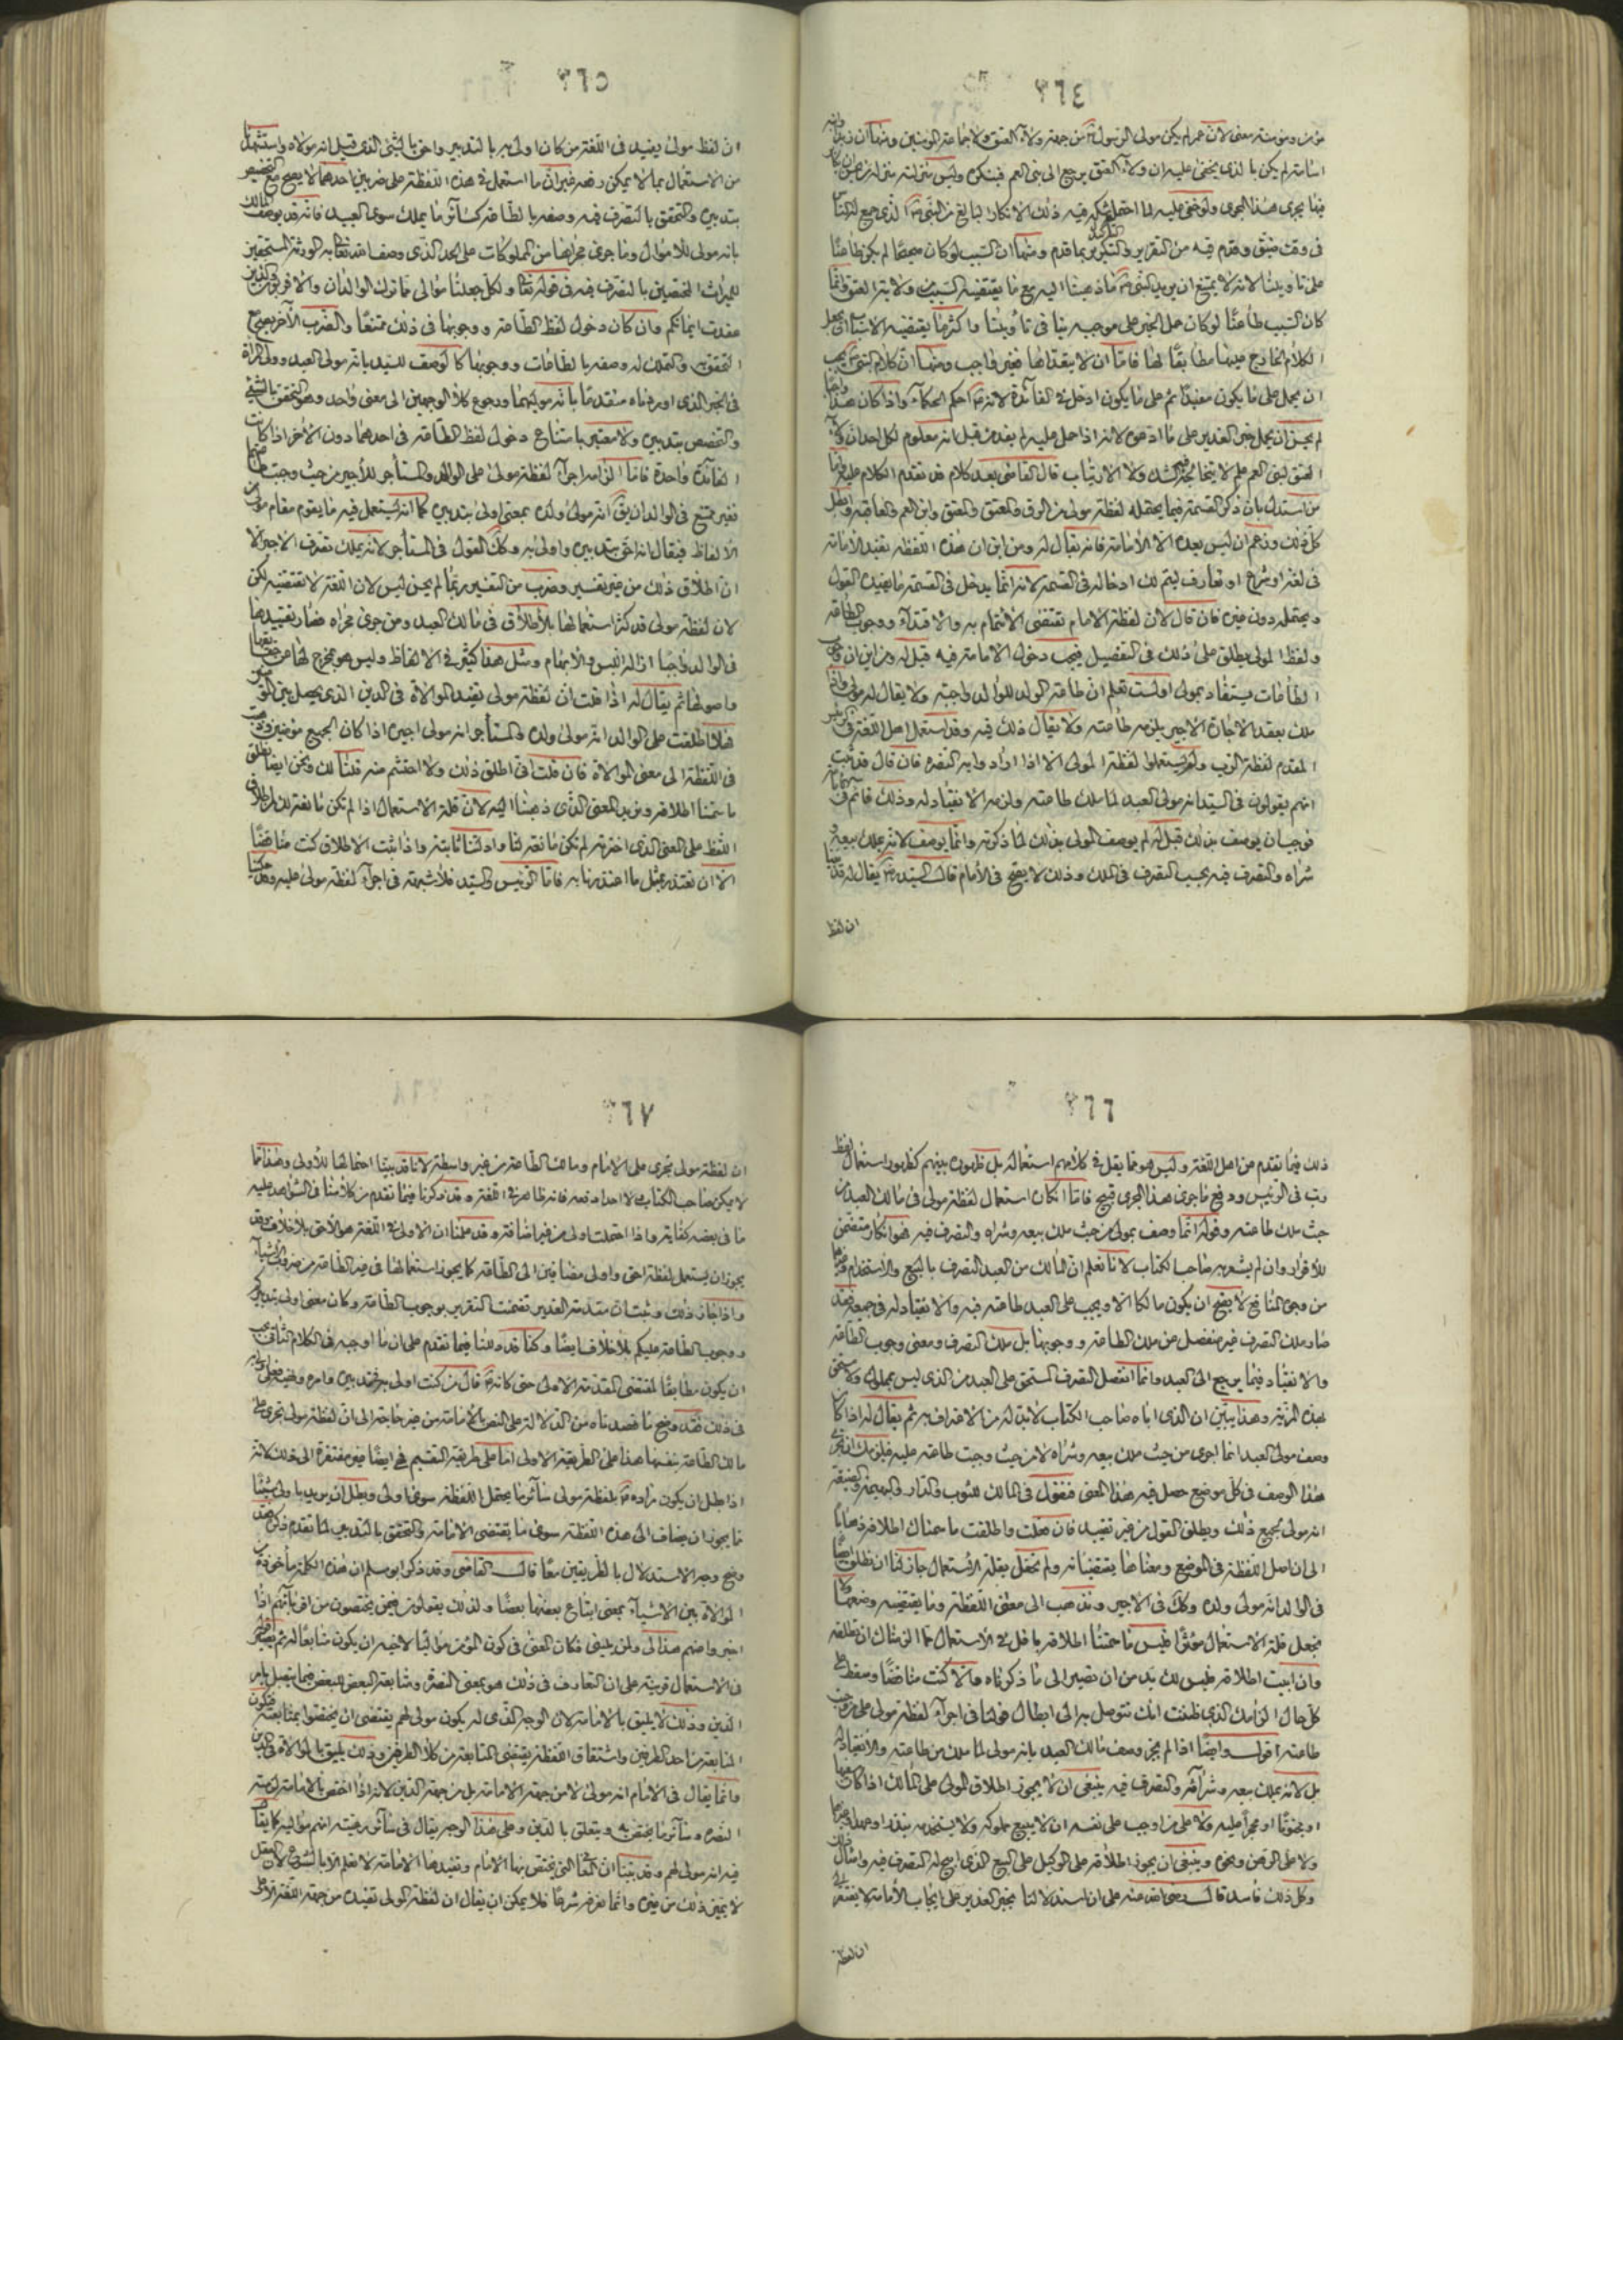 ٣٦٤
مؤمن ومؤمنة معنى لان عمر لم يكن مولى الرسول من جهة ولاء العتق ولا جماعة المؤمنين ومنها ان زيد بن
اسامة لم يكن بالذى يخفى عليه ان ولاء العتق يرجع الى بنى العم فينكره وليس منزلته منزلة من
هذا المجرى ولو خفى عليه لما احتمل شكه فيه ذلك الانكار البالغ من النبى الذى جمع له الناس
فى وقت ضيق وقدم فيه من التقرير والتأكيد بما قدم ومنها ان السبب لو كان صحيحا لم يكن طاعنا
على تاويلنا لانه لا يمتنع ان يريد النبى ما ذهبنا اليه مع ما يقتضيه السبب من ولاية العتق وانما
كان السبب طاعنا لو كان حمل الخبر على موجبه ينافى تاويلنا واكثر ما يقتضيه الاسباب ان يجعل
الكلام الخارج عندها مطابقا لها فاما ان لا يتعداها فغير واجب ومنها ان كلام النبى يجب
ان يحمل على ما يكون مفيدا ثم على ما يكون ادخل فى الفائدة لانه احكم الحكماء واذا كان هذا واجبا
لم يحسن ان يحمل خبر الغدير على ما ادعوه لانه اذا حمل عليه لم يفد من قبل انه معلوم لكل احد ان ولاء
العتق لبنى العم علم لا يتخالجه فيه الشك ولا الارتياب قال القاضى بعد كلام قد تقدم الكلام عليه واما
من استدل بان ذكر القسمة فيما يحتمله لفظة مولى من الرق والمعتق والمعتق وابن العم والعاقبة وابطل
كل ذلك وزعم ان ليس بعده الا الامامة فانه يقال له ومن اين ان هذه اللفظة تفيد الامامة
فى لغة او شرع او تعارف ليتم لك ادخاله فى القسمة لانه انما يدخل فى القسمة ما يفيده القول
ويحتمله دون غيره فان قال لان لفظة الامام تقتضى الائتمام به والاقتداء ووجوب الطاعة
ولفظ المولى يطلق على ذلك فى التفصيل فيجب دخول الامامة فيه قيل له ومن اين ان وجوب
الطاعات يستفاد بمولى اولست تعلم ان طاعة الولد للوالد واجبة ولا يقال له مولى واذا
ملك بعقد الاجارة الاجير يلزمه طاعته ولا يقال ذلك فيه وقد استعمل اهل اللغة فى الرئيس
المقدم لفظة الرب ولم يستعملوا لفظة المولى الا اذا ارادوا به النصرة فان قال قد ثبت
انهم يقولون فى السيد انه مولى العبد لما ملك طاعته ولزمه الانقياد له وذلك قائم فى الامام
فوجب ان يوصف بذلك قيل له لم يوصف المولى بذلك لما ذكرته وانما يوصف لانه يملك بيعه
وشراه والتصرف فيه بحسب التصرف فى الملك وذلك لا يصح فى الامام قال السيد يقال له قد بينا
ان لفظ
٣٦٥
ان لفظ مولى يفيد فى اللغة من كان اولى به بالتدبير واحق بالشئ الذى قيل انه مولاه واستشهدنا
من الاستعمال بما لا يمكن دفعه غير ان ما استعمل فى هذه اللفظة على ضربين احدهما لا يصح مع التخصيص
بتدبيره والتحقق بالتصرف فيه وصفه بالطاعة كسائر ما يملك سوى العبيد فانه قد يوصف المالك
بانه مولى للاموال وما جرى مجراها من المملوكات على الحد الذى وصف الله تعالى به الورثة المستحقين
للميراث المختصين بالتصرف فيه فى قوله تعالى ولكل جعلنا موالى مما ترك الوالدان والاقربون والذين
عقدت ايمانكم وان كان دخول لفظ الطاعة ووجوبها فى ذلك ممتنعا والضرب الاخر يصح مع
التحقق والتملك له وصفه بالطاعات ووجوبها كما يوصف السيد بانه مولى العبد وولى المرأة
فى الخبر الذى اوردناه متقدما بانه مولاها ورجوع كلا الوجهين الى معنى واحد وهو التحقق بالشئ
والتخصص بتدبيره ولا معتبر بامتناع دخول لفظ الطاعة فى احدهما دون الاخر اذا كانت
الفائدة واحدة فاما الزامه اجراء لفظة مولى على الوالد والمستأجر للاجير من حيث وجبت طاعتهما
فغير ممتنع فى الوالد ان يق انه مولى ولده بمعنى اولى بتدبيره كما انه يستعمل فيه ما يقوم مقام مولى من
الالفاظ فيقال انه احق بتدبيره واولى به وكك القول فى المستأجر لانه يملك تصرف الاجير الا
ان اطلاق ذلك من غير تفسير وضرب من التفسير ربما لم يحسن ليس لان اللغة لا تقتضيه لكن
لان لفظة مولى قد كثر استعمالها بالاطلاق فى مالك العبد ومن جرى مجراه فصار تقييدها
فى الوالد واجبا ازالة للبس والابهام ومثل هذا كثير فى الالفاظ وليس هو مخرج لها عن حقايقها
واصولها ثم يقال له اذا قلت ان لفظة مولى تفيد الموالاة فى الدين الذى يحصل بين المؤمنين
فهلا اطلقت على الوالد انه مولى ولده والمستأجر انه مولى اجيره اذا كان الجميع مؤمنين وذهبت
فى اللفظة الى معنى الموالاة فان قلت انى اطلق ذلك ولا احتشم منه قلنا لك ونحن ايضا نطلق
ما سمتنا اطلاقه ونريد المعنى الذى ذهبنا اليه لان قلة الاستعمال اذا لم تكن مانعة لك من اطلاق
اللفظ على المعنى الذى اخترته لم تكن مانعة لنا وادلتنا ثابتة واذا ابيت الاطلاق كنت مناقضا
الا ان تعتذر بمثل ما اعتذرنا به فاما الرئيس والسيد فلا شبهة فى اجراء لفظة مولى عليه وهذا
٣٦٦
ذلك فيما تقدم من اهل اللغة وليس هو مما يقل فى كلامهم استعماله بل ظهوره بينهم كظهور استعمال لفظة
رب فى الرئيس ودفع ما جرى هذا المجرى قبيح فاما انكار استعمال لفظة مولى فى مالك العبد من
حيث ملك طاعته وقوله انما وصف بمولى من حيث ملك بيعه وشراه والتصرف فيه فهو انكار متضمن
للاقرار وان لم يشعر به صاحب الكتاب لانا نعلم ان المالك من العبد التصرف بالبيع والاستخدام وغيرهما
من وجوه المنافع لا يصح ان يكون مالكا الا ويجب على العبد طاعته فيه والانقياد له فى جميعه فقد
صار ملك التصرف غير منفصل من ملك الطاعة ووجوبها بل ملك التصرف ومعنى وجوب الطاعة
والانقياد فيما يرجع الى العبد وانما انفصل التصرف المستحق على العبد من الذى ليس بمملوك ولا يستحق
بهذه المزية وهذا يبين ان الذى اباه صاحب الكتاب لا بد له من الاعتراف به ثم يقال له اذا كان
وصف مولى العبد انما اجرى من حيث ملك بيعه وشراه لا من حيث وجبت طاعته عليه فيلزمك ان تجرى
هذا الوصف فى كل موضع حصل فيه هذا المعنى فتقول فى المالك للثوب والدار والبهيمة والضيعة
انه مولى لجميع ذلك ويطلق القول من غير تقييد فان فعلت واطلقت ما سمناك اطلاقه ذهابا
الى ان اصل اللفظة فى الوضع ومعناها يقتضيانه ولم تحفل بقلة الاستعمال جاز لنا ان نطلق ايضا
فى الوالد انه مولى ولده وكك فى الاجير ونذهب الى معنى اللفظة وما يقتضيه وضعها ولا
نجعل قلة الاستعمال مؤثرا فليس ما سمتنا اطلاقه باقل فى الاستعمال مما الزمناك ان تطلقه
وان ابيت اطلاقه فليس لك بد من ان تصير الى ما ذكرناه والا كنت مناقضا وسقط على
كل حال الزامك الذى ظننت انك تتوصل به الى ابطال قولنا فى اجراء لفظة مولى على من وجبت
طاعته اقول وايضا اذا لم يجز وصف مالك العبد بانه مولى لما ملك من طاعته والانقياد له
بل لانه يملك بيعه وشراءه والتصرف فيه ينبغى ان لا يجوز اطلاق المولى على المالك اذا كان سفيها
او مجنونا او محجرا عليه ولا على من اوجب على نفسه ان لا يبيع مملوكه ولا يستخدمه بنذر او عهد او غيرهما
ولا على الرهن ونحوه وينبغى ان يجوز اطلاقه على الوكيل على البيع الذى ابيح له التصرف فيه وامثال ذلك
وكل ذلك فاسد قال رضى الله عنه على ان استدلالنا بخبر الغدير على ايجاب الامامة لا يفتقر الى
ان لفظة
٣٦٧
ان لفظة مولى تجرى على الامام ومالك الطاعة من غير واسطة لانا قد بينا احتمالها للاولى وهذا مما
لا يمكن صاحب الكتاب ولا احدا دفعه فانه ظاهر فى اللغة وقد ذكرنا فيما تقدم من كلامنا فى الشواهد عليه
ما فى بعضه كفاية واذا احتملت اولى من غير اضافة وقد علمنا ان الاولى فى اللغة هو الاحق بلا خلاف وقد
يجوز ان يستعمل لفظة احق واولى مضافين الى الطاعة كما يجوز استعمالها فى غير الطاعة من ضروب الاشياء
واذا جاز ذلك وثبت ان مقدمة الغدير تضمنت التقرير بوجوب الطاعة وكان معنى اولى بتدبيركم
ووجوب الطاعة عليكم بلا خلاف ايضا وكنا قد دللنا فيما تقدم على ان ما اوجبه فى الكلام الثانى يجب
ان يكون مطابقا لمقتضى المقدمة الاولى حتى كانه قال من كنت اولى به فى تدبيره وامره ونهيه فعلى
فى ذلك فقد وضح ما قصدناه من الدلالة على النص بالامامة من غير حاجة الى ان لفظة مولى تجرى على
مالك الطاعة بنفسها هذا على الطريقة الاولى اما على طريقة التقسيم فهى ايضا غير مفتقرة الى ذلك لانه
اذا بطل ان يكون مراده بلفظة مولى سائر ما يحتمل اللفظة سوى اولى وبطل ان يريد باولى شيئا
مما يجوز ان يضاف الى هذه اللفظة سوى ما يقتضى الامامة والتحقق بالتدبير لما تقدم ذكره فقد
وضح وجه الاستدلال بالطريقين معا قال القاضى وقد ذكر ابو مسلم ان هذه الكلمة مأخوذة من
الموالاة بين الاشياء بمعنى اتباع بعضها بعضا ولذلك يقولون فيمن يختصون من اقربائهم اذا
اخبروا عنهم هذا الى ومن يلينى فكان المعنى فى كون المؤمن مواليا لاخيه ان يكون متابعا له ثم
فى الاستعمال قريته على ان التعارف فى ذلك هو بمعنى النصرة ومتابعة البعض للبعض فيما يتصل بامر
الدين وذلك لا يليق بالامامة لان الوجه الذى له يكون مولى لهم يقتضى ان يختصوا بمثله فيكون
المتابعة من احد الطرفين واشتقاق اللفظة يقتضى المتابعة من كلا الطرفين وذلك يليق بالموالاة فى الدين
وانما يقال فى الامام انه مولى لا من جهة الامامة بل من جهة الدين لانه اذا اختص بالامامة لزمته
النصرة وسائر ما يختص به ويتعلق بالدين وعلى هذا الوجه يقال فى سائر رعيته انهم مواليه كما يقال
فيه انه مولى لهم وقد بينا ان المعانى التى يختص بها الامام وتفيدها الامامة لا تعلم الا بالشرع لان العقل
لا يميز ذلك من غيره وانما نعرفه شرعا فلا يمكن ان يقال ان لفظة المولى تفيده من جهة اللغة الا على